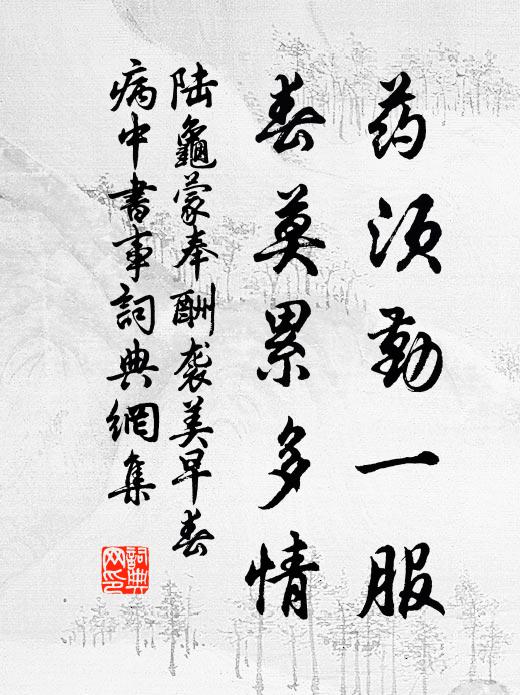 药须勤一服
春莫累多情
陆龜蒙奉酬袭美早春
病中書事詞典網集
詞典网印